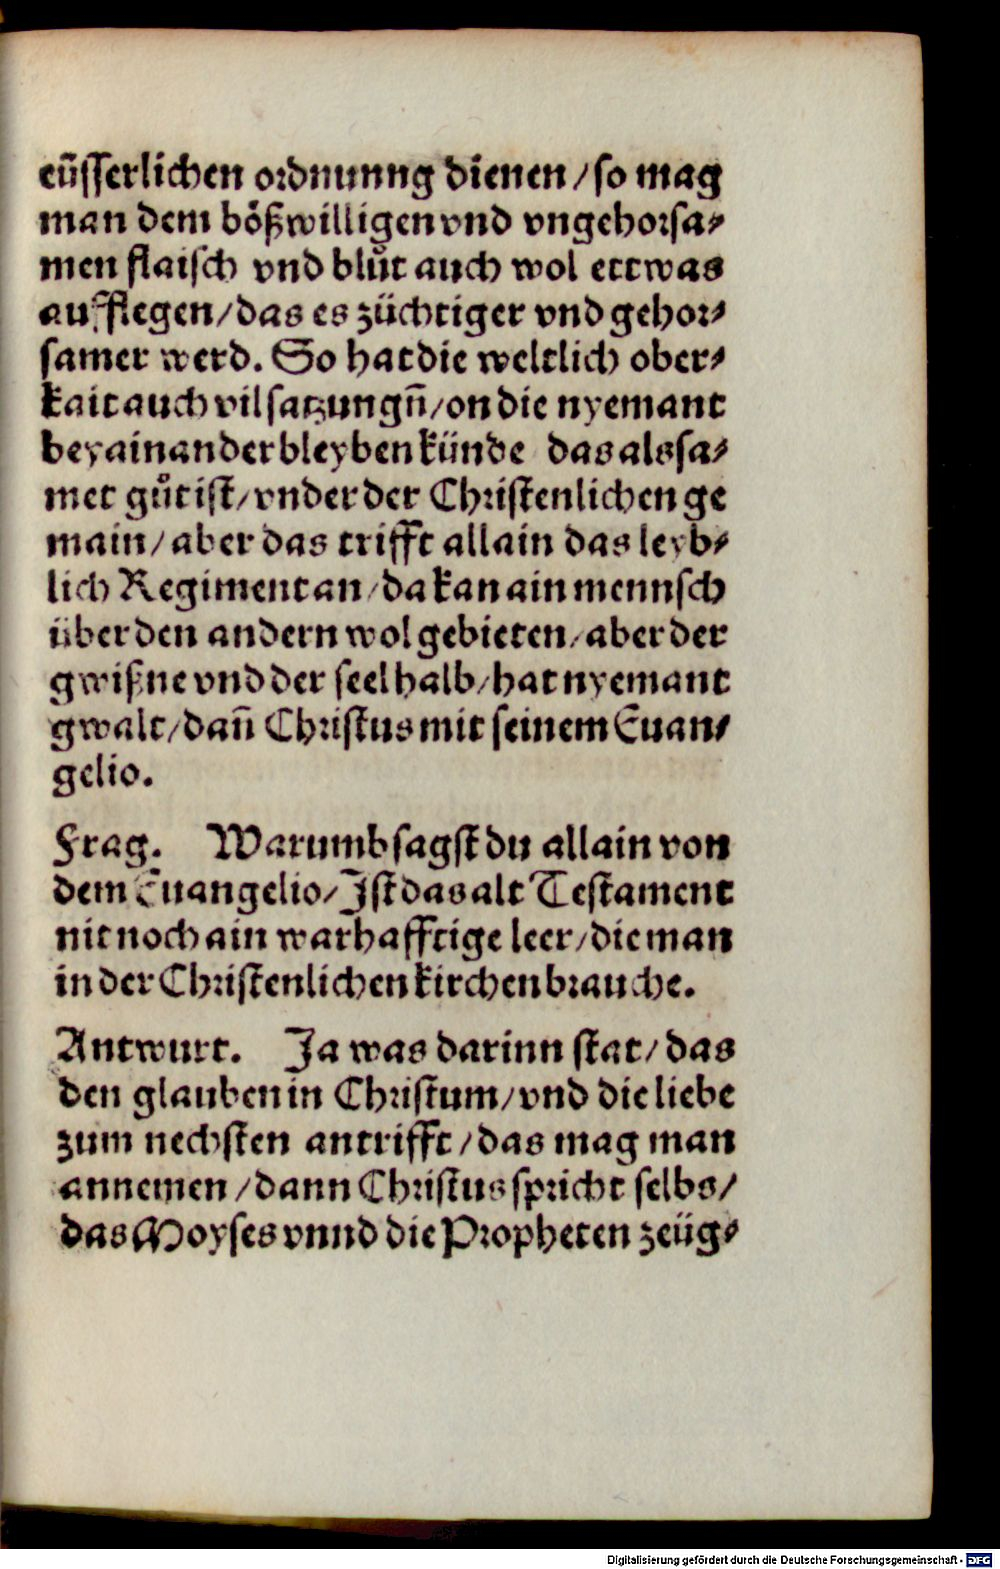 eüsserlichen ordnunng dienen / so mag
man dem bößwilligen vnd vngehorsa⸗
men flaisch vnd blůt auch wol ettwas
aufflegen / das es züchtiger vnd gehor⸗
samer werd. So hat die weltlich ober⸗
kait auch vil satzungñ / on die nyemant
bey ainander bleyben künde das als sa⸗
met gůt ist / vnder der Christenlichen ge
main / aber das trifft allain das leyb⸗
lich Regiment an / da kan ain mennsch
über den andern wol gebieten / aber der
gwißne vnd der seel halb / hat nyemant
gwalt / dañ Christus mit seinem Euan⸗
gelio.
Frag. Warumb sagst du allain von
dem Euangelio / Ist das alt Testament
nit noch ain warhafftige leer / die man
in der Christenlichen kirchen brauche.
Antwurt. Ja was darinn stat / das
den glauben in Christum / vnd die liebe
zum nechsten antrifft / das mag man
annemen / dann Christus spricht selbs /
das Moyses vnnd die Propheten zeüg⸗
Digitalisierung gefördert durch die Deutsche Forschungsgemeinschaft - DFG